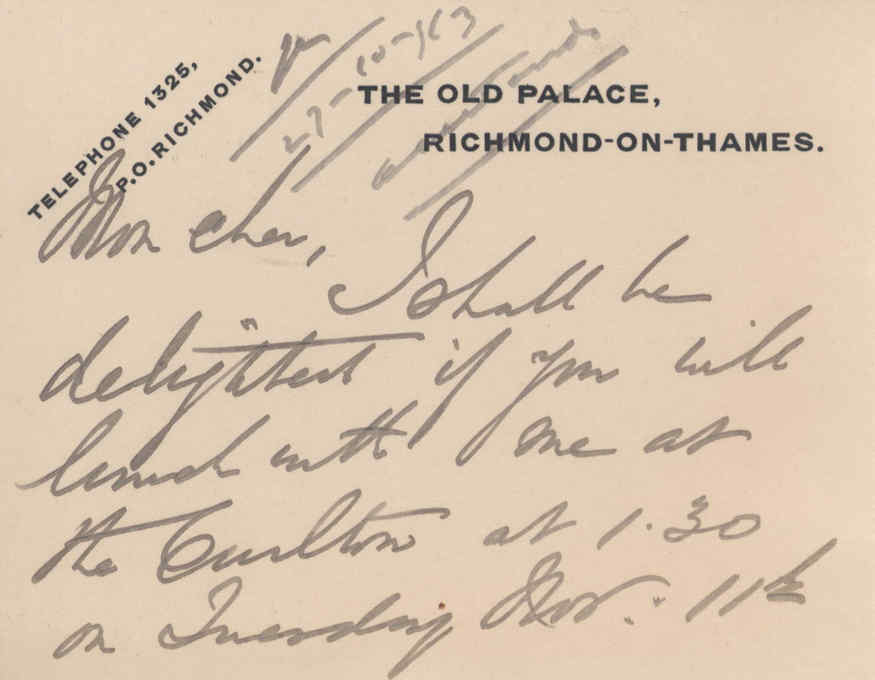 TELEPHONE 1325,
P.O. RICHMOND.
27-10-13
THE OLD PALACE,
RICHMOND-ON-THAMES.
Mon cher,
I shall be
delighted if you will
lunch with me at
the Carlton at 1.30
on Tuesday Nov. 11th